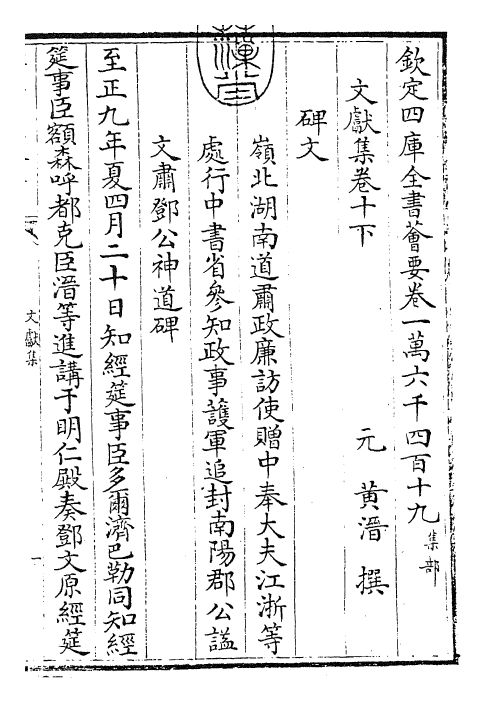 欽定四庫全書薈要卷一萬六千四百十九 集部
文獻集卷十下
元 黃溍 撰
碑文
嶺北湖南道肅政廉訪使贈中奉大夫江浙等
處行中書省參知政事護軍追封南陽郡公諡
文肅鄧公神道碑
至正九年夏四月二十日知經筵事臣多爾濟巴勒同知經
筵事臣額森呼都克臣溍等進講于明仁殿奏鄧文原經筵
文獻集
一